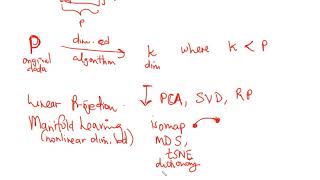 P
P dim. red k where K < P
original data algorithm dim
Linear Projection PCA, SVD, RP
Manifold Learning isomap
(nonlinear dim. red) MDS,
tSNE
dictionary